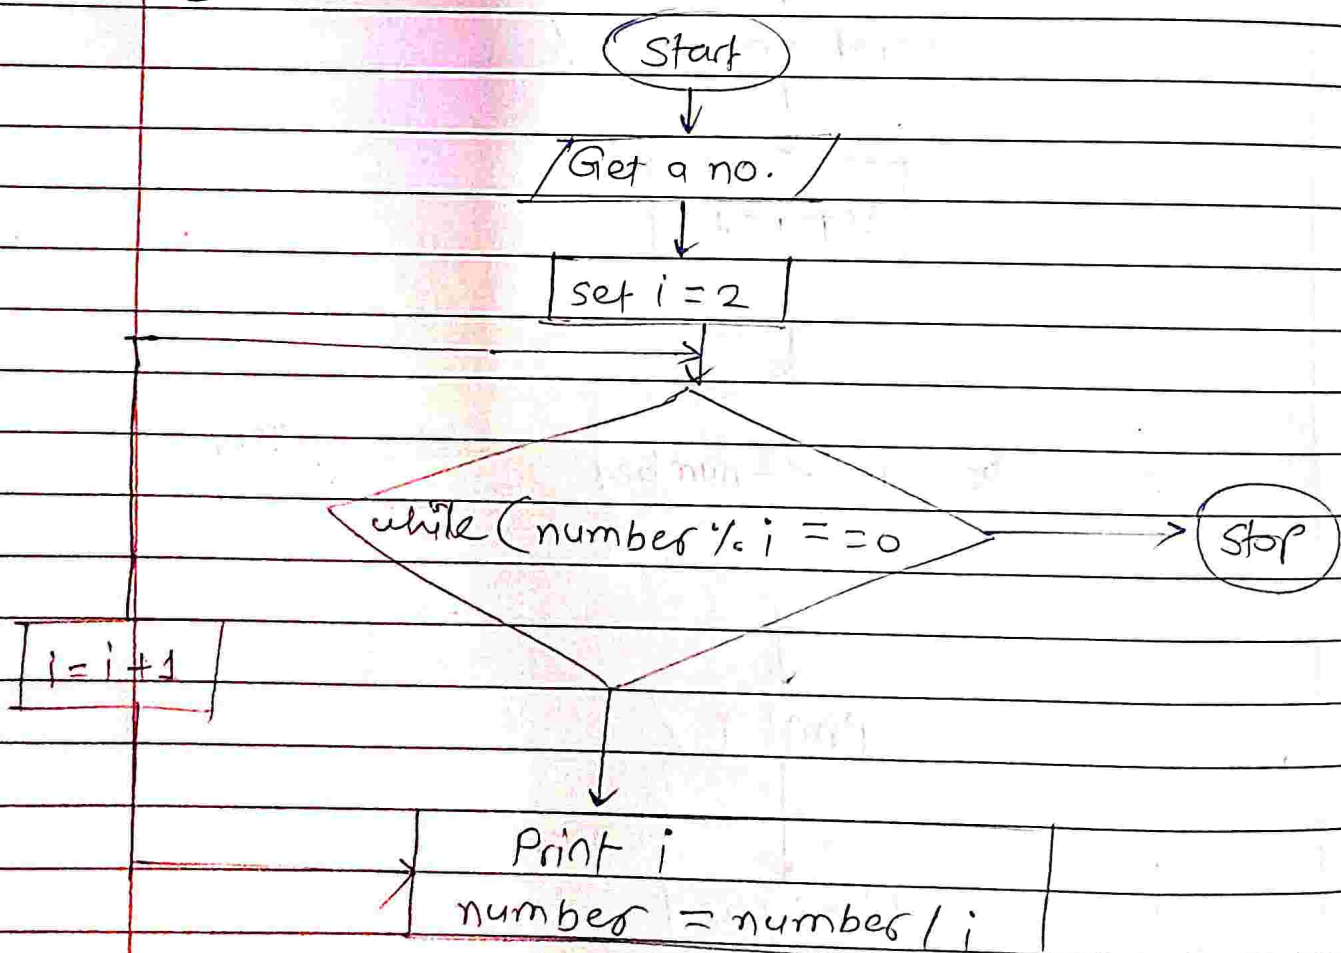 Start
Get a no.
set i = 2
while (number % i = = 0
Stop
i = i + 1
Print i
number = number / i